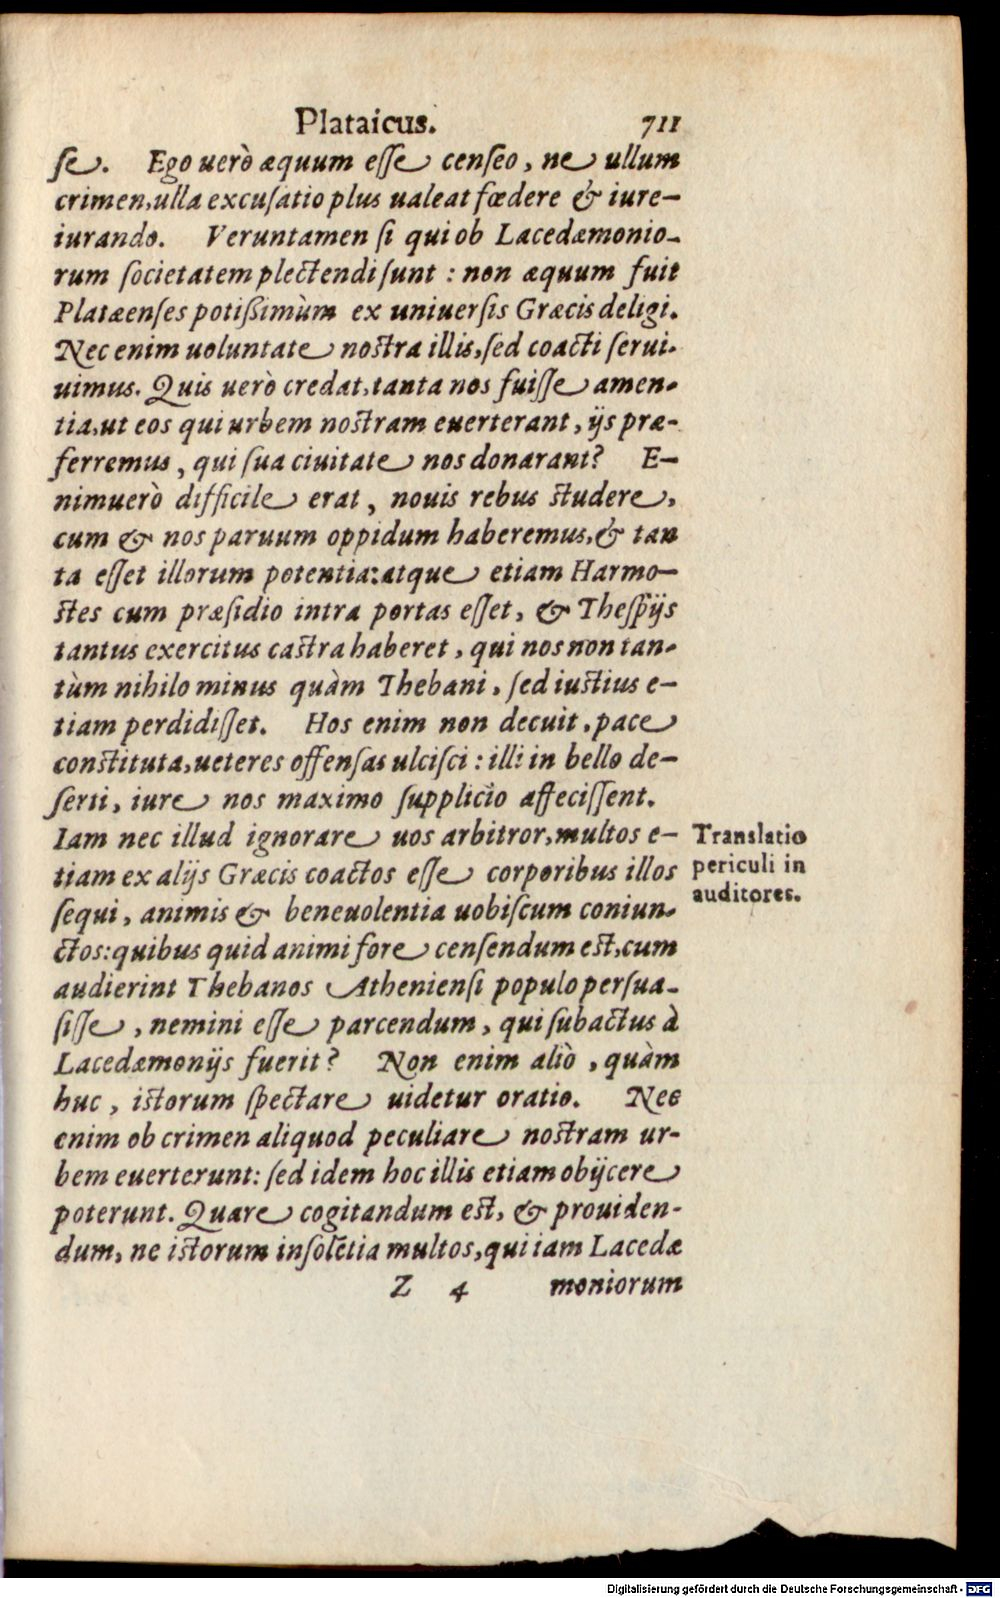 Plataicus. 711
se. Ego uerò æquum esse censeo, ne ullum
crimen, ulla excusatio plus ualeat fœdere & iure-
iurando. Veruntamen si qui ob Lacedæmonio-
rum societatem plectendi sunt : non æquum fuit
Platæenses potißimùm ex uniuersis Græcis deligi.
Nec enim uoluntate nostra illis, sed coacti serui-
uimus. Quis uerò credat, tanta nos fuisse amen-
tia, ut eos qui urbem nostram euerterant, ijs præ-
ferremus, qui sua ciuitate nos donarant? E-
nimuerò difficile erat, nouis rebus studere,
cum & nos paruum oppidum haberemus, & tan
ta esset illorum potentia: atque etiam Harmo-
stes cum præsidio intra portas esset, & Thespijs
tantus exercitus castra haberet, qui nos non tan-
tùm nihilo minus quàm Thebani, sed iustius e-
tiam perdidisset. Hos enim non decuit, pace
constituta, ueteres offensas ulcisci : illi in bello de-
serti, iure nos maximo supplicio affecissent.
Iam nec illud ignorare uos arbitror, multos e-
tiam ex alijs Græcis coactos esse corporibus illos
sequi, animis & beneuolentia uobiscum coniun-
ctos: quibus quid animi fore censendum est, cum
audierint Thebanos Atheniensi populo persua-
sisse, nemini esse parcendum, qui subactus à
Lacedæmonijs fuerit? Non enim aliò, quàm
huc, istorum spectare uidetur oratio. Nec
enim ob crimen aliquod peculiare nostram ur-
bem euerterunt: sed idem hoc illis etiam obijcere
poterunt. Quare cogitandum est, & prouiden-
dum, ne istorum insolẽtia multos, qui iam Lacedæ
Z 4 moniorum
Translatio
periculi in
auditores.
Digitalisierung gefördert durch die Deutsche Forschungsgemeinschaft - DFG